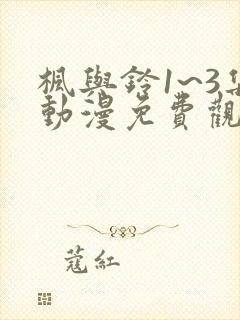 楓與鈴1~3集
動漫免費觀
蔻紅